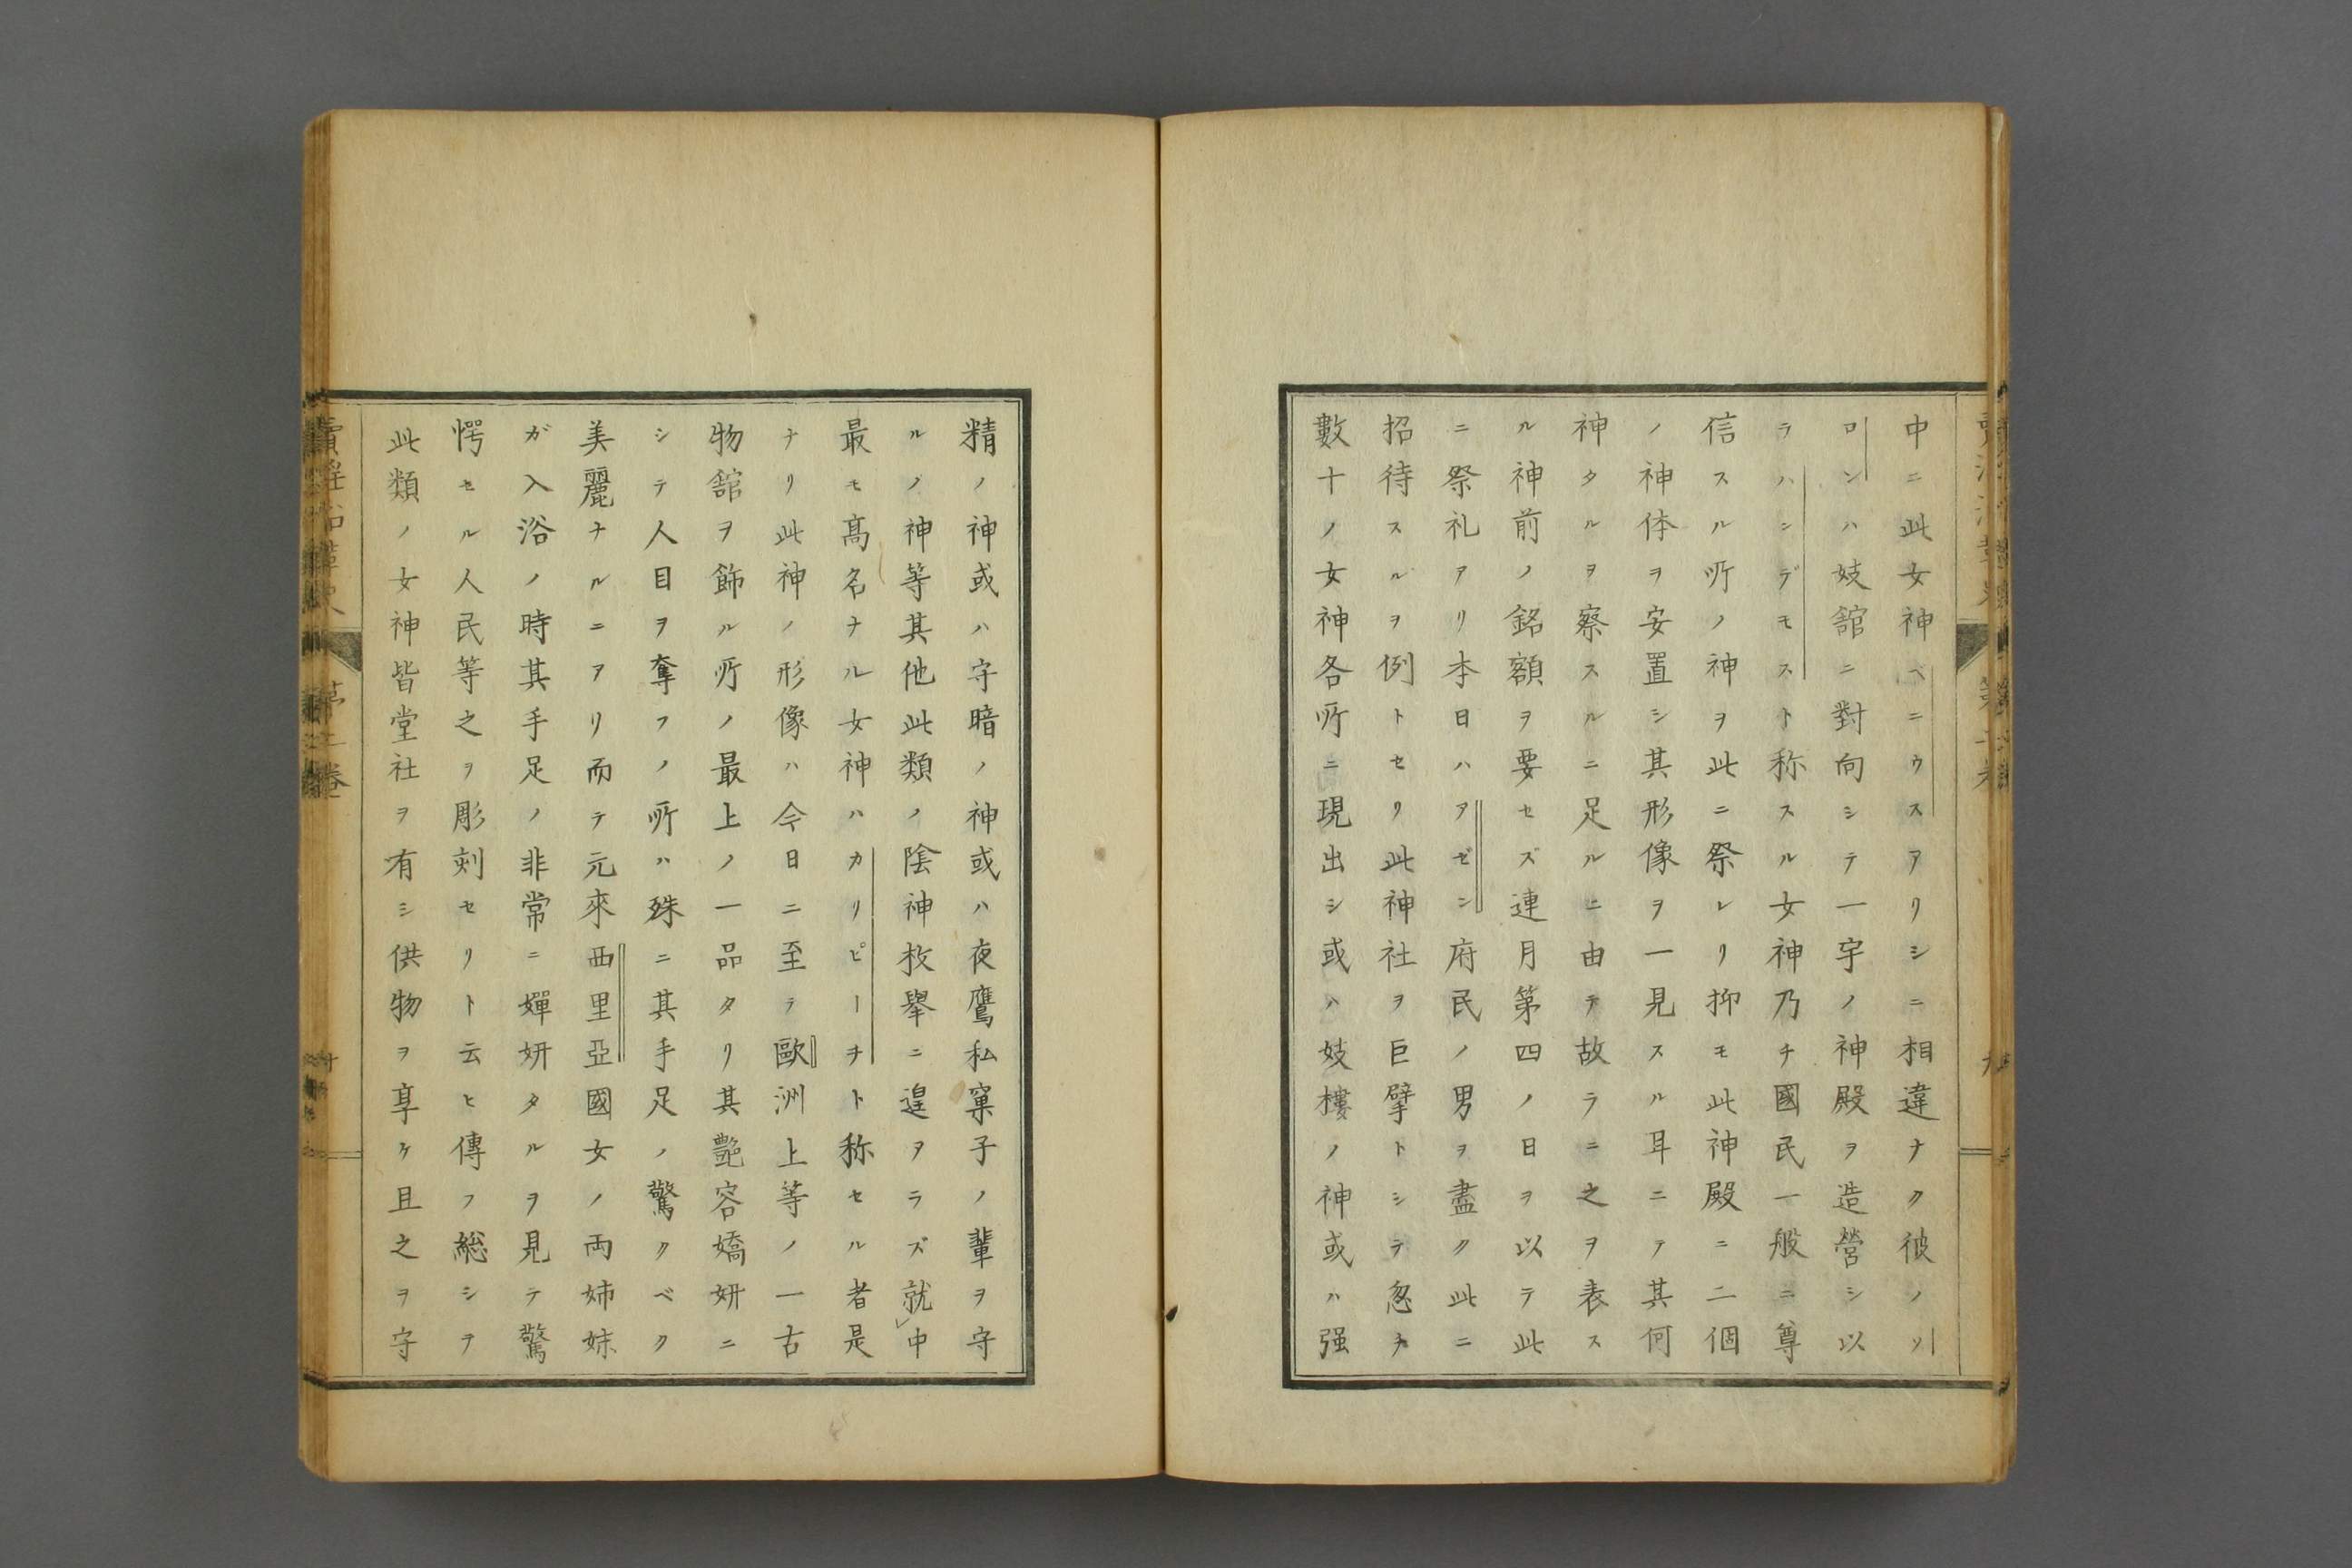 中ニ此女神ベニウスアリシニ相違ナク彼ノソ
ロンハ妓舘ニ對向シテ一宇ノ神殿ヲ造營シ以
ラハンデモスト称スル女神乃チ國民一般ニ尊
信スル所ノ神ヲ此ニ祭レリ抑モ此神殿ニ二個
ノ神体ヲ安置シ其形像ヲ一見スル耳ニテ其何
神タルヲ察スルニ足ルニ由テ故ラニ之ヲ表ス
ル神前ノ銘額ヲ要セズ連月第四ノ日ヲ以テ此
ニ祭礼アリ本日ハアゼン府民ノ男ヲ盡ク此ニ
招待スルヲ例トセリ此神社ヲ巨擘トシテ忽チ
數十ノ女神各所ニ現出シ或ハ妓樓ノ神或ハ强
精ノ神或ハ守暗ノ神或ハ夜鷹私窠子ノ輩ヲ守
ルノ神等其他此類ノ陰神枚擧ニ遑ヲラズ就中
最モ高名ナル女神ハカリピーチト称セル者是
ナリ此神ノ形像ハ今日ニ至テ歐洲上等ノ一古
物舘ヲ飾ル所ノ最上ノ一品タリ其艶容嬌妍ニ
シテ人目ヲ奪フノ所ハ殊ニ其手足ノ驚クベク
美麗ナルニアリ而テ元來西里亞國女ノ両姉妹
ガ入浴ノ時其手足ノ非常ニ嬋妍タルヲ見テ驚
愕セル人民等之ヲ彫刻セリト云ヒ傳フ総シテ
此類ノ女神皆堂社ヲ有シ供物ヲ享ケ且之ヲ守
賣淫沿革史
第二卷
十